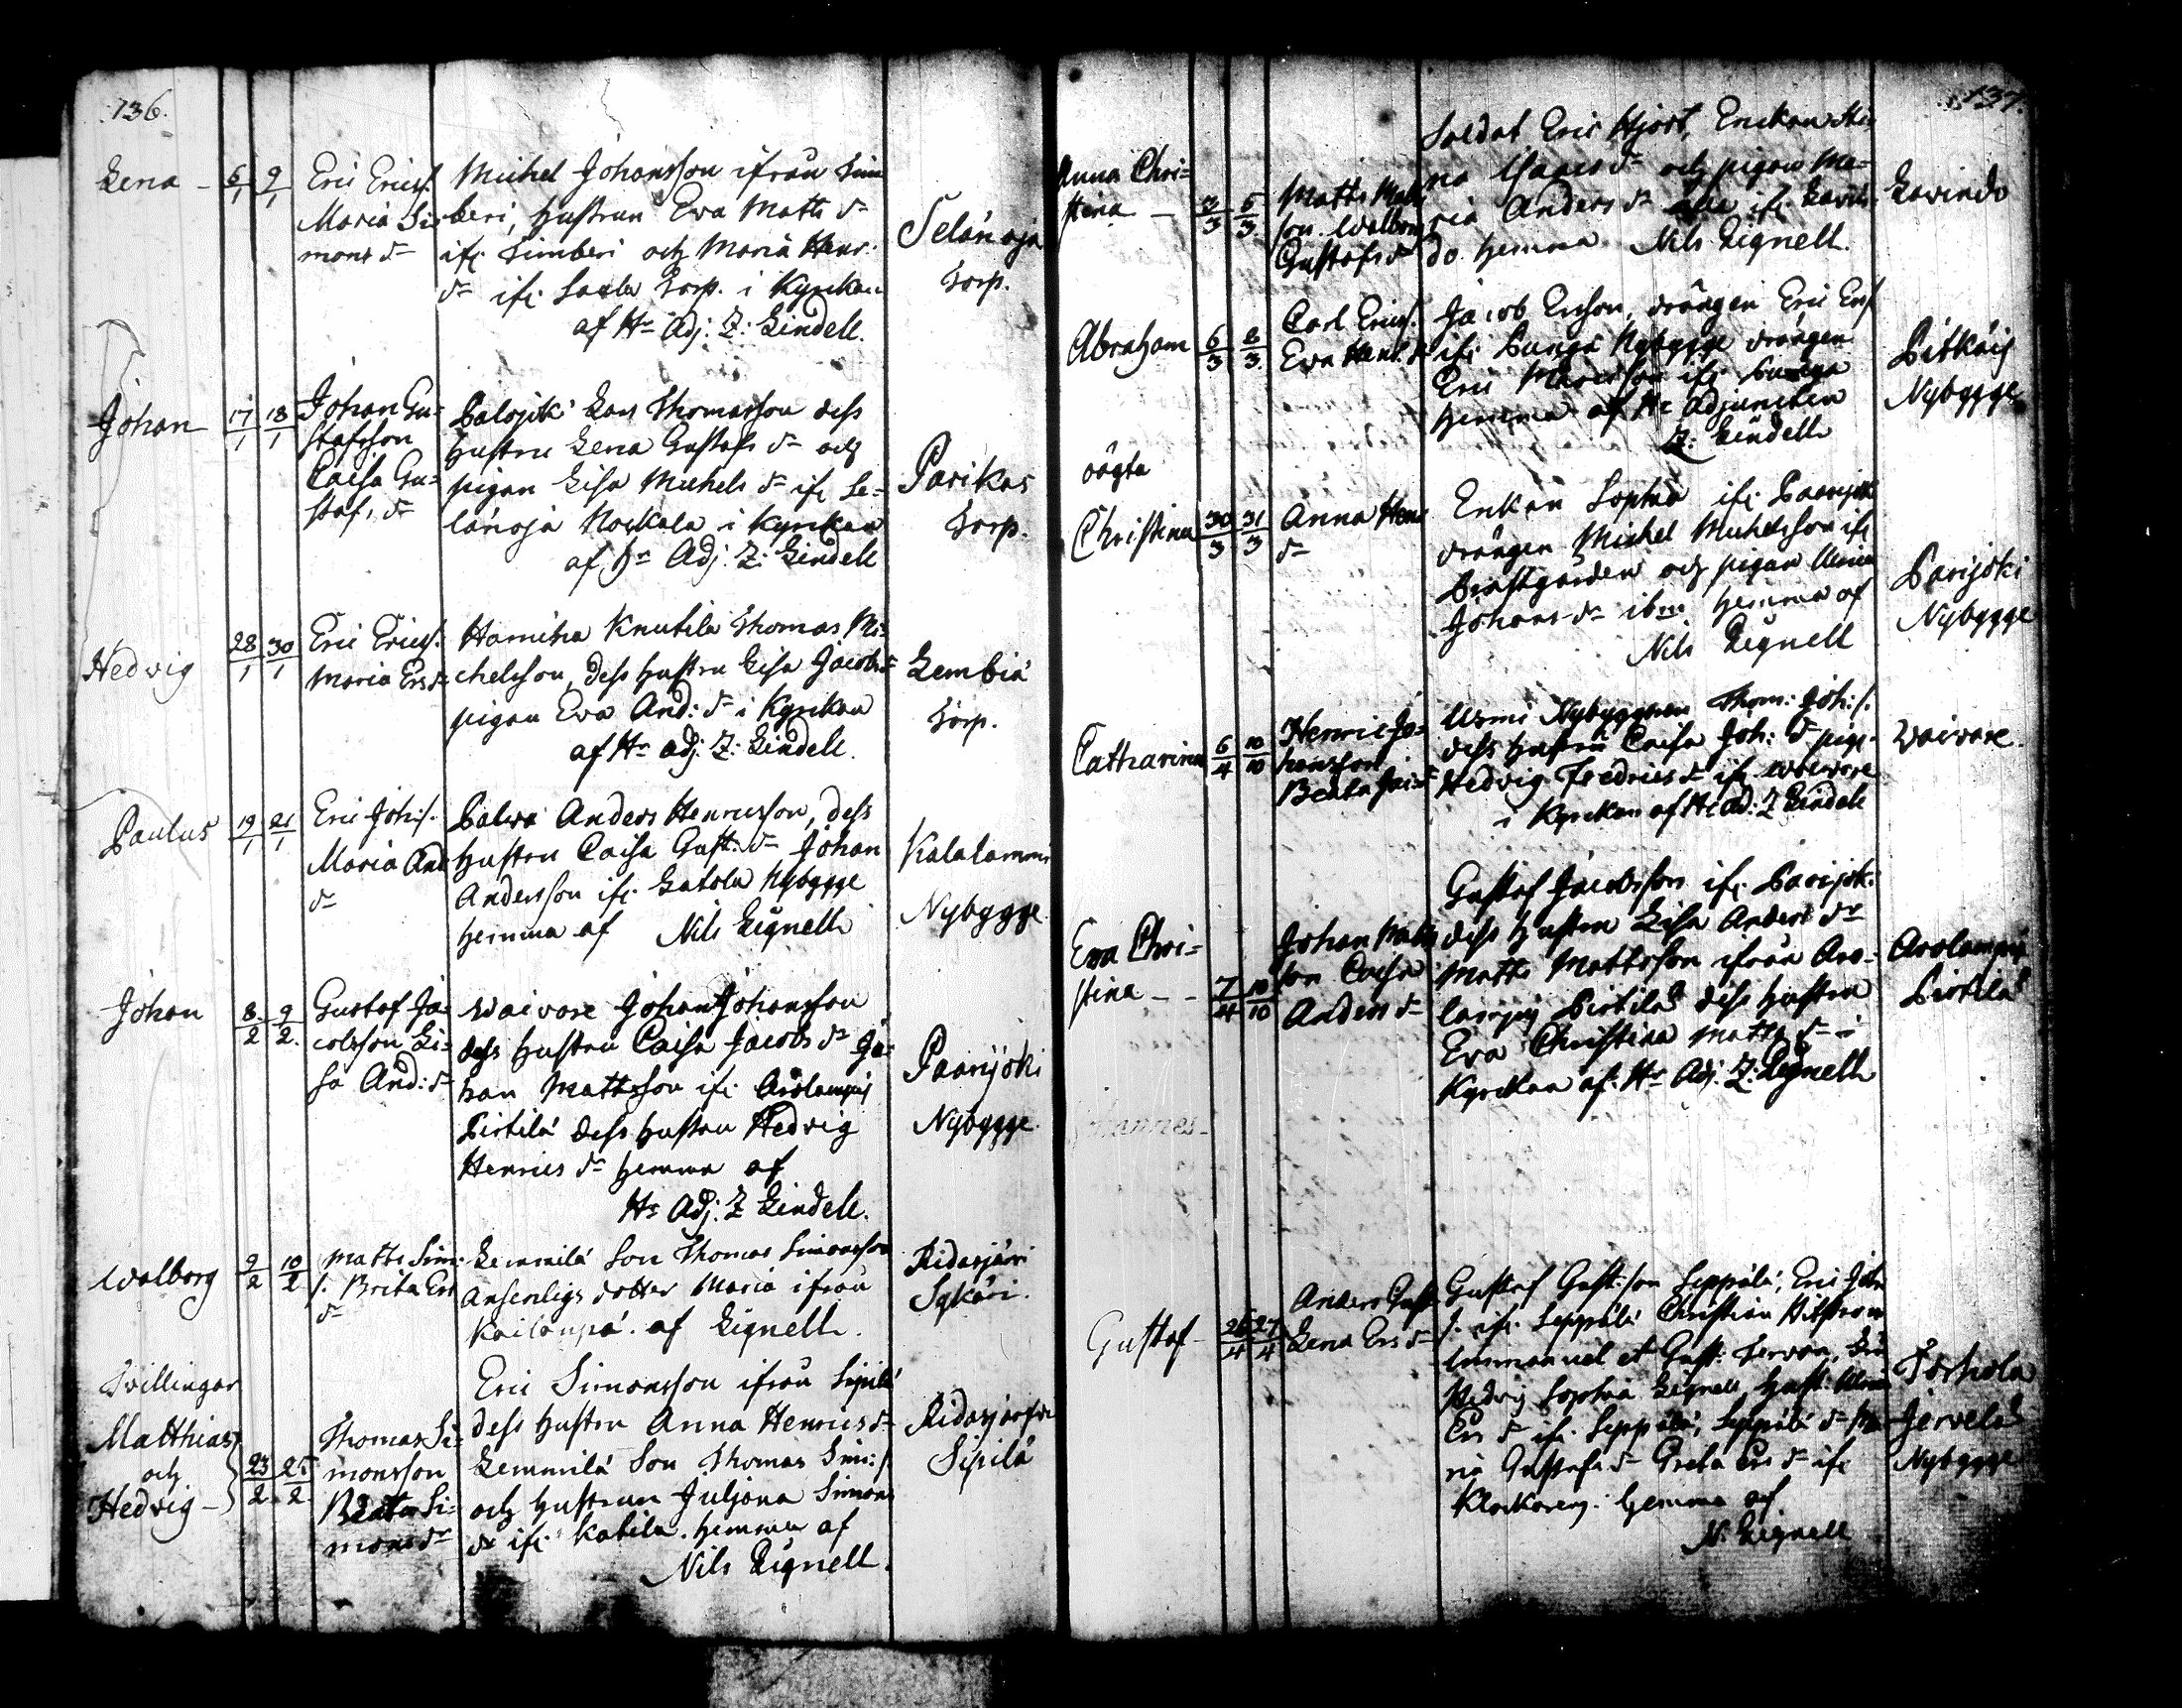 136.
Lena - 6/1 9/1 Eric Erics/. Michel Johansson ifrån Tim
Maria Si- beri, hustrun Eva Matts dr
mons dr ifr. Timberi och Maria Henr.
dr ifr. Torp. i Kyrkan
af Hr Adj: Z: Lindell.
Selänoja
Torp.
Johan 17/1 18/1 Johan Gu= Lars Thomasson dess
stafsson hustru Lena Gustafs dr och
Caisa Gu= pigan Lisa Michels dr ifr Se=
staf. dr länoja i Kyrkan
af Hr Adj: Z: Lindell
Parikas
Torp.
Hedvig 28/1 30/1 Eric Erics/. Knutila Thomas Mi=
Maria Ers dr chelsson, dess hustru Lisa Jacobs dr
pigan Eva And: dr i Kyrkan
af Hr Adj: Z: Lindell.
Lembiä
Torp.
Paulus 19/1 21/1 Eric Joh:/. Anders Henricsson, dess
Maria And hustru Caisa Gust: dr Johan
dr Andersson ifr. Nybygge
hemma af Nils Lignell
Kalalammi
Nybygge
Johan 8/2 9/2 Gustaf Ja= Waivare Johan Johansson
cobsson Li= dess hustru Caisa Jacobs dr Jo=
sa And: dr han Mattsson ifr Arolampi
Pirtilä dess hustru Hedvig
Henrics dr hemma af
Hr Adj: Z Lindell.
Paarijoki
Nybygge.
Walborg 9/2 10/2 Matts Sim: Lemmilä Son Thomas Simonsson
/. Brita Ers dotter Maria ifrån
dr af Lignell.
Ridasjärvi
Tvillingar
Matthias
och
Hedvig - 23/2 25/2 Thomas Si=
monsson
Beata Si=
mons dr
Eric Simonsson ifrån Sipilä
dess hustru Anna Henrics dr
Lemmilä Son Thomas Sim:/.
och hustrun Juljana Simons
dr ifr. Katila. hemma af
Nils Lignell.
Ridasjärfvi
Sipilä
137.
Anna Chri=
stina - 3/3 5/3 Matts Matts
son. Walborg
Gustafs dr
Soldat Eric Hjort, Enckan Sti
na Isaacs dr och pigan Ma=
ria Anders dr ifr. Kavin
do. hemma Nils Lignell.
Kavindo
Abraham 6/3 8/3 Carl Erics/.
Eva Henr. dr
Jacob Ericson, drängen Eric Ers/
ifr. Nybygge drängen
Eric ifr.
hemma af Hr Adjuncten
Z: Lindell
Pitkäis
Nybygge
oägta
Christina 30/3 31/3 Anna Henr
dr
Enkan Sophia ifr. Paarijoki
drängen Michel Michelsson ifr
Prästgården och pigan Ulrica
Johans dr ibm. hemma af
Nils Lignell
Parijoki
Nybygge
Catharina 6/4 10/10 Henric Jo=
hansson
Beata
Nybyggaren Thom: Joh:/.
dess hustru Caisa Joh: dr pig.
Hedvig Fredrics dr ifr. Waivare
i Kyrckan af Hr Ad: Z Lindell
Waivare.
Eva Chri=
stina - - 7/4 10/10 Johan Matts
son Caisa
Anders dr
Gustaf Jacobsson ifr. Parijoki
dess hustru Lisa Anders dr
Matts Mattsson ifrån Aro=
lampi Pirtilä dess hustru
Eva Christina Matts dr i
Kyrckan af Hr Adj: Z: Lignell
Arolampi
Pirtilä
Gustaf - 26/4 27/4 Anders Gust
Lena Ers dr
Gustaf Gust:son Seppälä, Eric Joh
/. ifr. Seppälä Christian
Immanuel et Gust:
Hedvig Sophia Lignell, hust. Ulrica
Ers dr ifr. Seppälä, Seppälä dr Ma
ria Gustafs dr Greta Ers dr ifr
Klockaren. hemma af
N. Lignell
Torhola
Jervelä
Nybygge